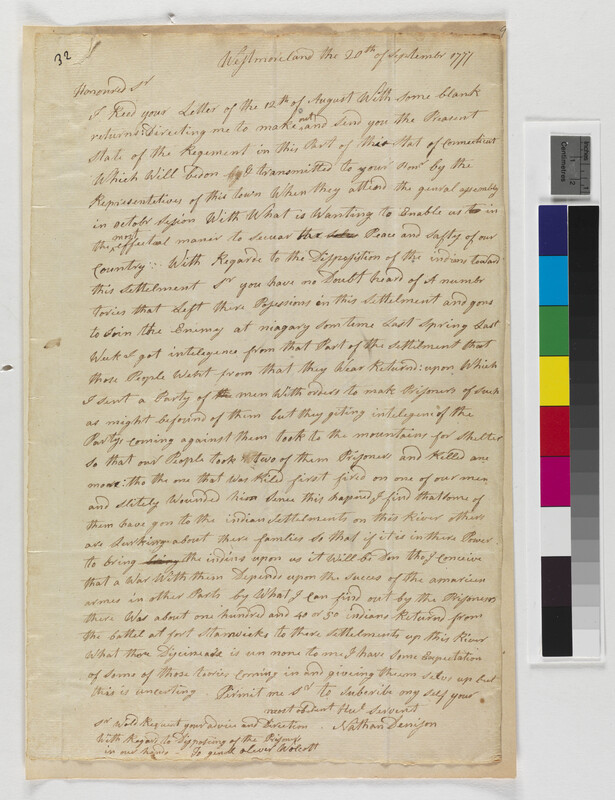 32
Westmoreland the 20th of September 1777
Honoured Sr
I Reed your Letter of the 12th of August With some blank
returns: Directing me to make out and send you the Preasent
State of the Regement in this Part of this Stat of Connecticut
Which Will be don & transmitted to your Honr by the
Representitives of this town When they attend the genral assembly
in octobr session With What is Wanting to Enable us to in
the most effectual maner to secuar the Peace and safty of our
Country :. With Regarde to the Disposistion of the indians toward
this settelment Sr you have no Doubt heard of A numbr
tories that Left there Posessions in this settelment and gone
to Join the Enemy at niagary somtime Last spring Last
Week I got intelegence from that Part of the settelment that
those People Went from that they Wear Returnd: upon Which
I sent a Party of the men With orders to make Prisoners of such
as might be found of them but they giting intelegenc of the
Party coming against them took to the mountains for shelter
so that our People took two of them Prisoners and Killed one
more: tho the one that was Kiled first fired on one of our men
and slitely Wounded him Since this hapned I find that some of
them have gon to the indian settelments on this River others
are Lurking about there famlies so that if it is in there Power
to bring the indins upon us it Will be Don tho I conceive
that a War With them Depends upon the succes of the amarican
armes in other Parts by What I can find out by the Prisoners
there Was about one hundred and 40 or 50 indians Returnd from
the battel at fort Stanwicks to there settelments up this River
What there Dyeimeads is un none to me I have some Expectation
of some of those tories coming in and giveing them selves up but
this is uncerting. Permit me Sr to subscribe my self your
most obediant Huml servent
Nathan Denison
Sr Wold Request your advice and Direction
With Regard to Disposing of the Prisoners
in our hands - To genll oliver Wolcott
Centimetres
Inches